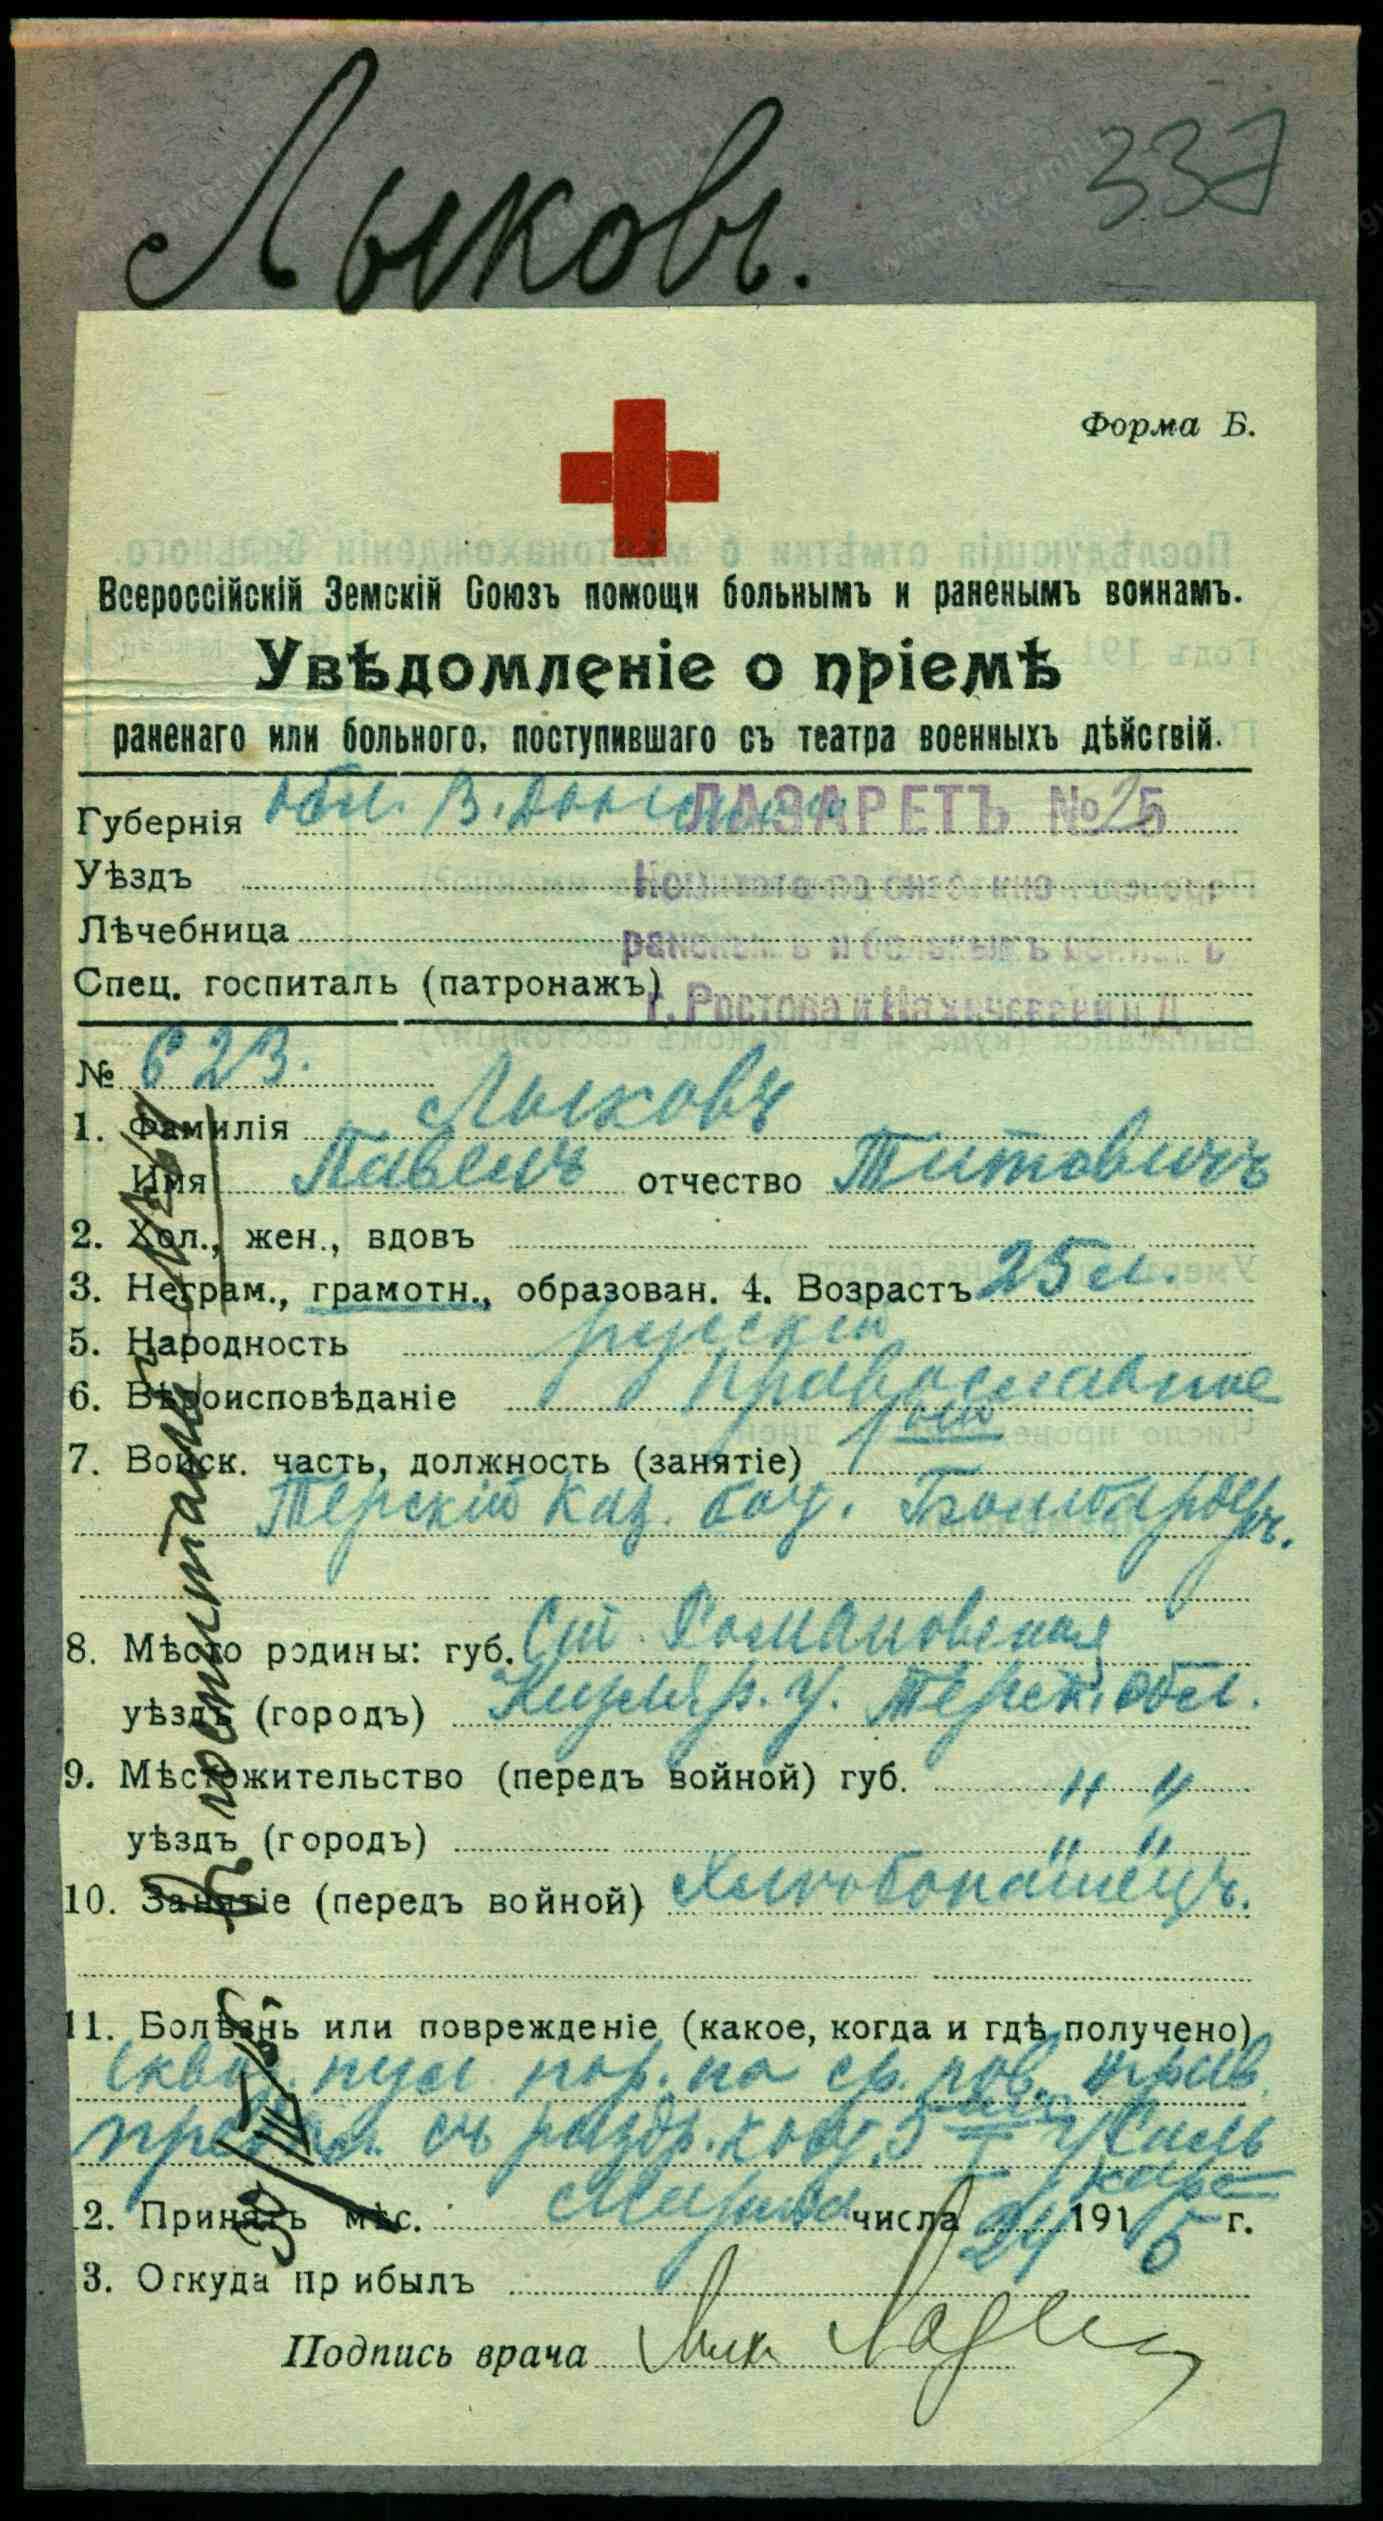 Лыковъ.
337
Форма Б.
Всероссійскій Земскій Союзъ помощи больнымъ и раненымъ воинамъ.
Увѣдомленіе о пріемѣ
раненаго или больного, поступившаго съ театра военныхъ дѣйствій.
Губернія обл. В. Донского ЛАЗАРЕТЪ № 25
Уѣздъ
Лѣчебница
Спец. госпиталь (патронажъ)
г. Ростова и Нахичевани н Д
№ 623.
1. Фамилія Лыковъ
Имя Павелъ отчество Титовичъ
2. Хол., жен., вдовъ
3. Неграм., грамотн., образован. 4. Возрастъ 25 л.
5. Народность русскій
6. Вѣроисповѣданіе православное
7. Войск. часть, должность (занятіе) 1ый
Терскій каз. бат. Бомбардиръ.
8. Мѣсто родины: губ. Ст. Романовская
уѣздъ (городъ) Кизляр. у. Терск. обл.
9. Мѣстожительство (передъ войной) губ. " "
уѣздъ (городъ) " "
10. Занятіе (передъ войной) Хлѣбопашецъ.
11. Болѣзнь или поврежденіе (какое, когда и гдѣ получено)
сквоз. пул. пор. по ср. пов. прав.
предпл. съ раздр. кост. 5
2. Принятъ мѣс. Марта числа 24 1915 г.
3. Откуда прибылъ
Подпись врача